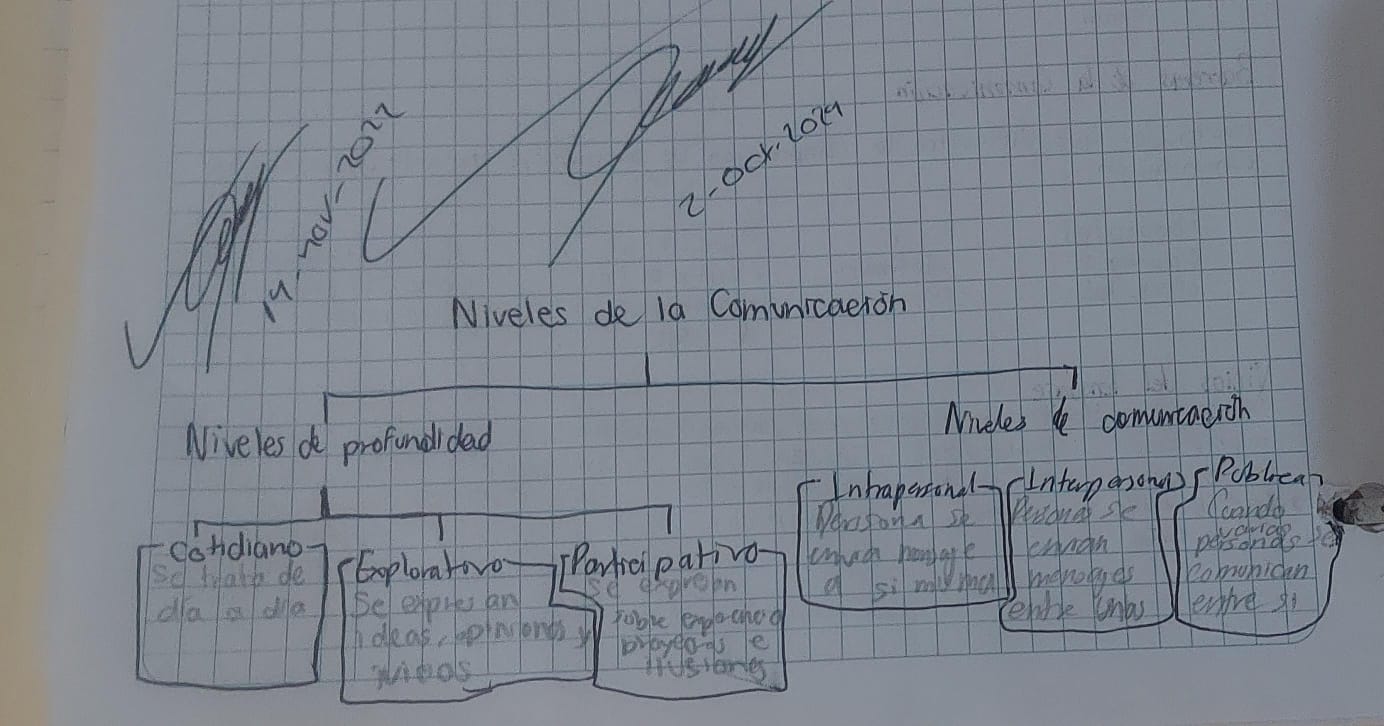 14-nov-2022
2-Oct.2024
Niveles de la Comunicación
Niveles de profundidad
Niveles de comunicación
Cotidiano
Se trata de
día a día
Explorativo
Se expresan
ideas, opiniones y
Participativo
Se expresan
sobre
proyectos e
ilusiones
Intrapersonal
Persona se
a si misma
Interpersonal
Personas se
envian
mensajes
entre unas
Publica
Cuando
varias
personas se
comunican
entre si